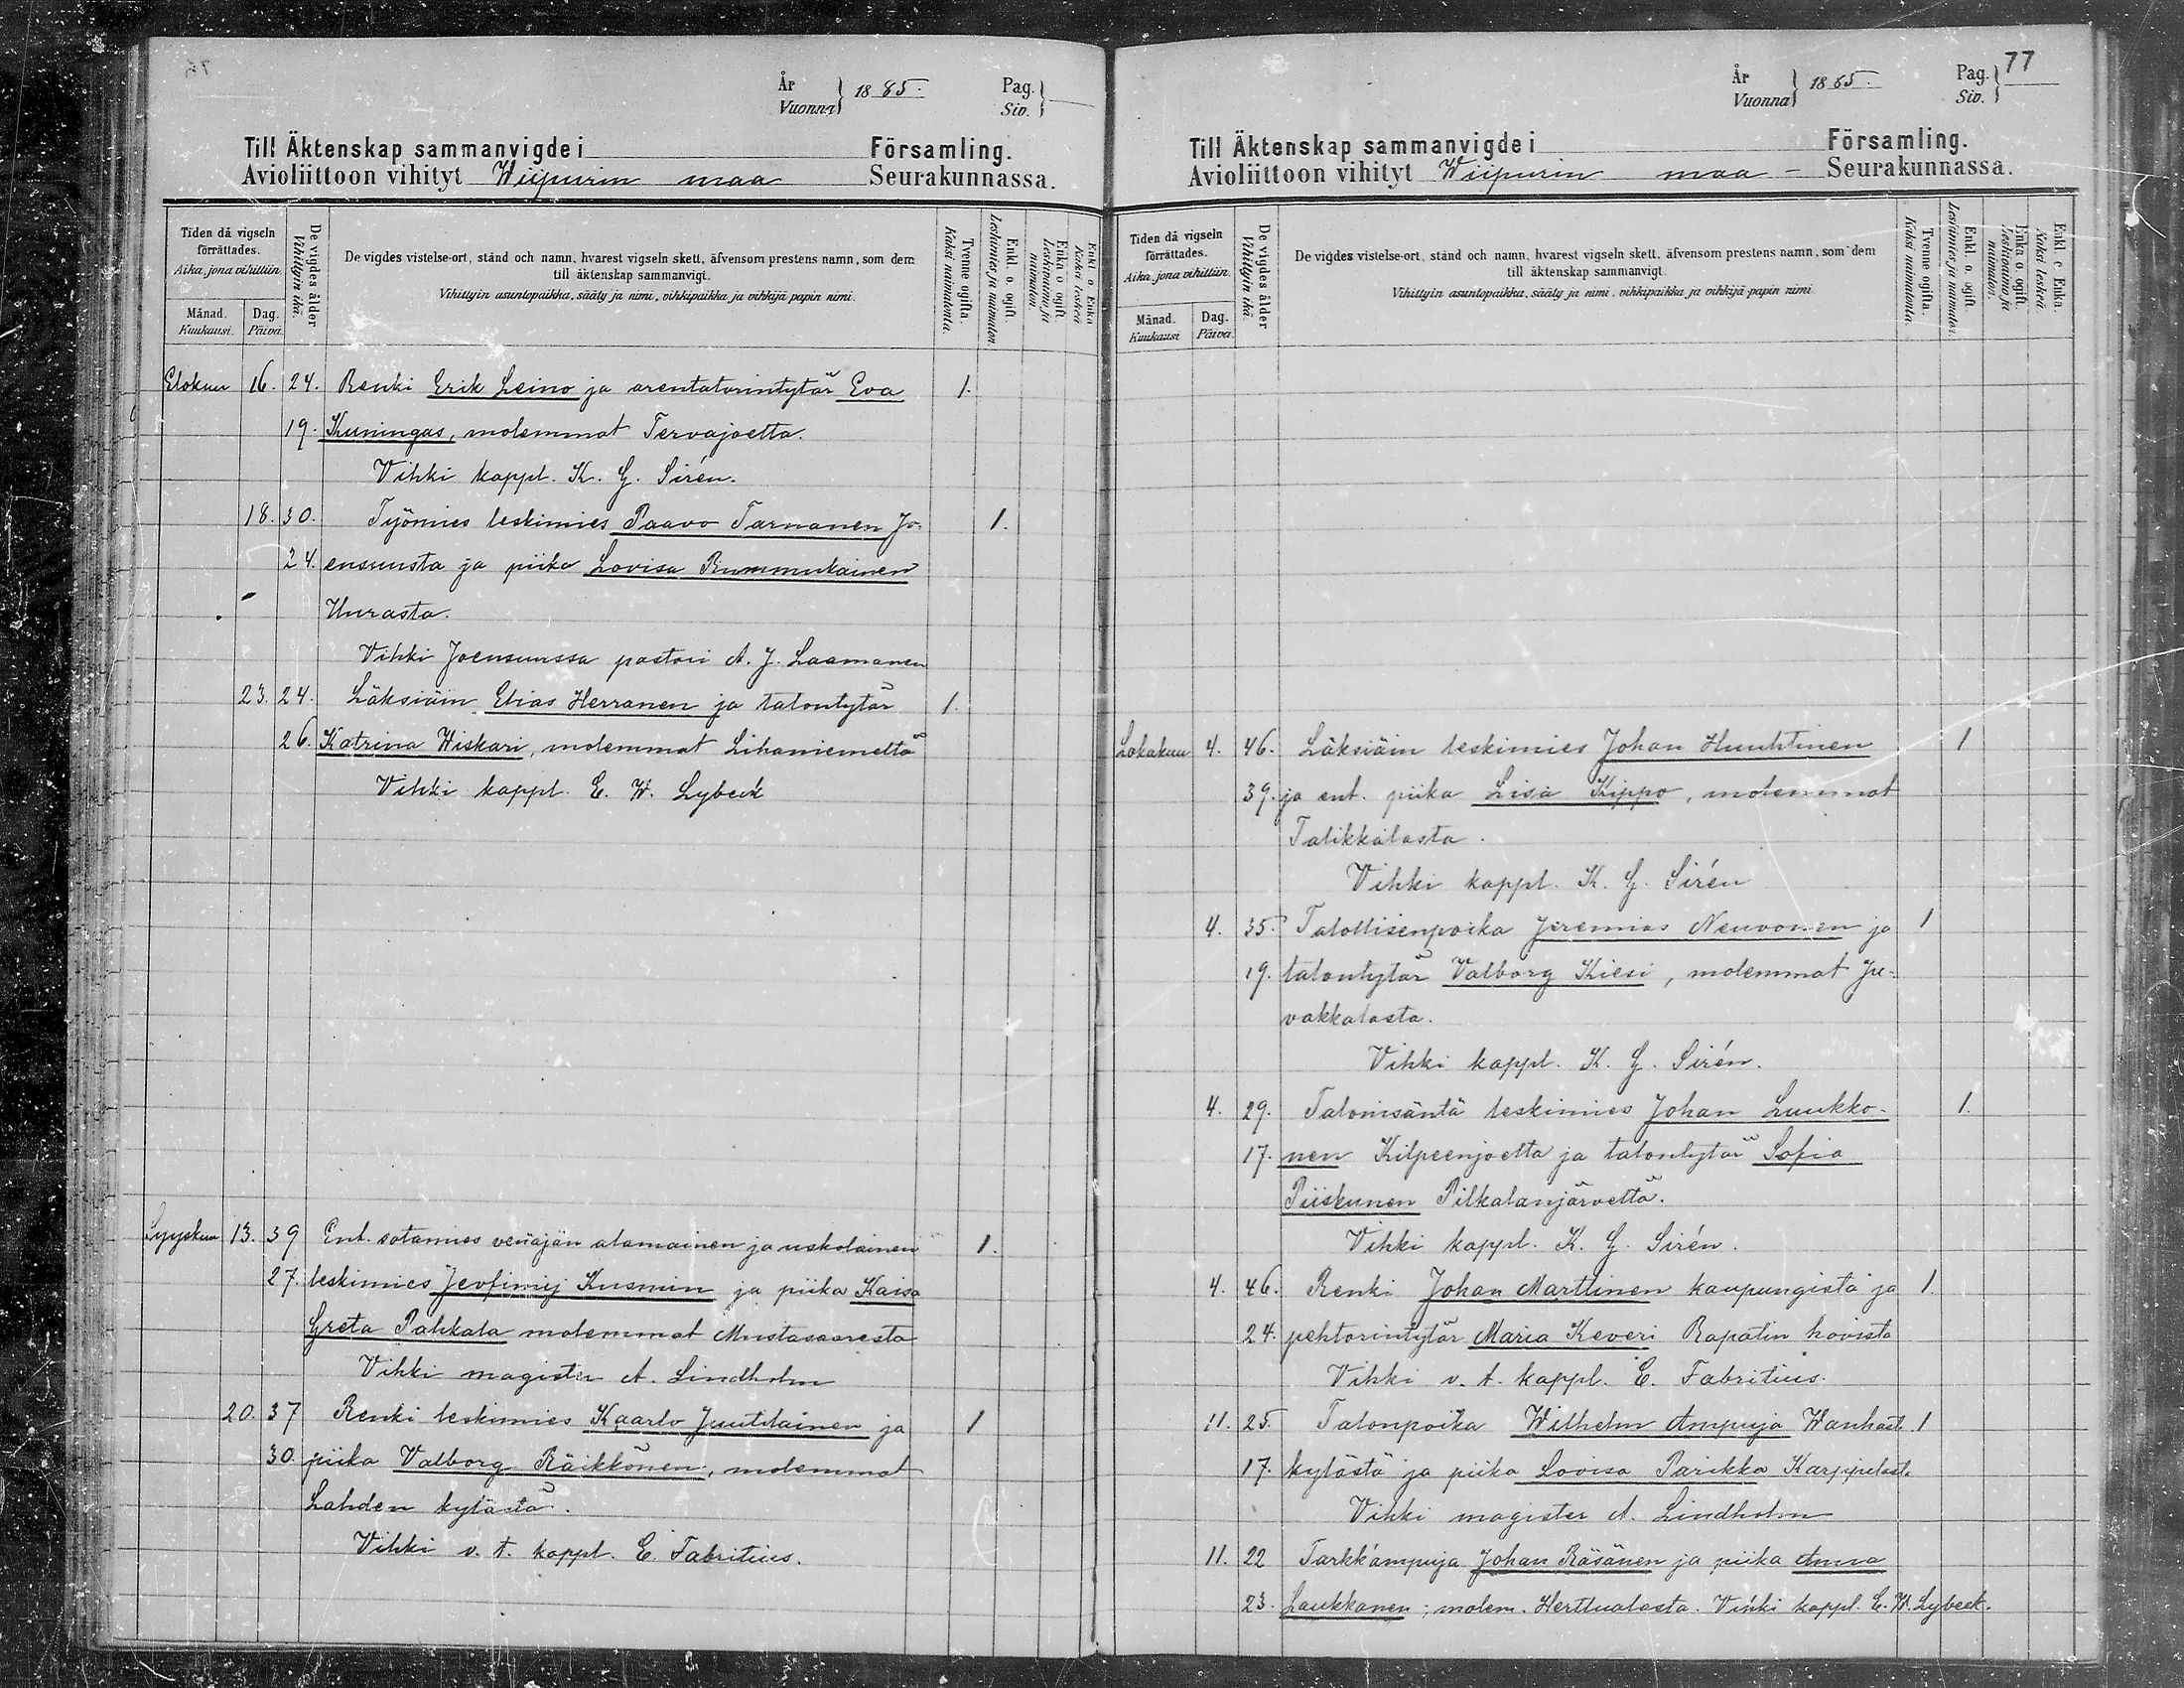 År
Vuonna
1885.
Pag.
Siv.
Till Äktenskap sammanvigde i Församling.
Avioliittoon vihityt Wiipurin maa Seurakunnassa.
Tiden då vigseln förrättades.
Aika, jona vihittiin.
Månad.
Kuukausi.
Dag.
Päivä.
De vigdes ålder
Vihittyin ikä.
De vigdes vistelse-ort, stånd och namn, hvarest vigseln skett, äfvensom prestens namn, som dem
till äktenskap sammanvigt.
Vihittyin asuntopaikka, sääty ja nimi, vihkipaikka ja vihkijä papin nimi.
Tvenne ogifta.
Kaksi naimatonta.
Enkl. o. ogift.
Leskimies ja naimaton.
Enka o ogift.
Leskivaimo ja naimaton.
Enkl o Enka
Kaksi leskeä
Elokuu 16. 24. Renki Erik Leino ja arentatorintytär Eva 1.
19. Kuningas, molemmat Tervajoelta.
Vihki kappl. K. G. Sirén.
18. 30. Työmies leskimies Paavo Tarnanen Jo- 1.
24. ensuusta ja piika Lovisa Rummukainen
Uurasta.
Vihki Joensuussa pastori A. J. Laamanen
23. 24. Läksiäin Elias Herranen ja talontytär 1.
26. Katrina Hiskari, molemmat Lihaniemeltä
Vihki kappl. E. W. Lybeck
Syyskuu 13. 39 Ent. sotamies venäjän alamainen ja uskolainen 1.
27. leskimies Jevfimij Kusmin ja piika Kaisa
Greta Pahkala molemmat Mustasaaresta
Vihki magister A. Lindholm
20. 37 Renki leskimies Kaarlo Juutilainen ja 1
30. piika Valborg Räikkönen, molemmat
Lahden kylästä.
Vihki v. t. kappl. E. Fabritius.
År
Vuonna
1885.
Pag.
Siv.
77
Till Äktenskap sammanvigde i Församling.
Avioliittoon vihityt Wiipurin maa - Seurakunnassa.
Tiden då vigseln förrättades.
Aika, jona vihittiin.
Månad.
Kuukausi
Dag.
Päivä.
De vigdes ålder
Vihittyin ikä.
De vigdes vistelse-ort, stånd och namn, hvarest vigseln skett, äfvensom prestens namn, som dem
till äktenskap sammanvigt.
Vihittyin asuntopaikka, sääty ja nimi, vihkipaikka ja vihkijä papin nimi
Tvenne ogifta.
Kaksi naimatonta.
Enkl. o. ogift.
Leskimies ja naimaton.
Enka o. ogift.
Leskivaimo ja naimaton.
Enkl. c. Enka.
Kaksi leskeä.
Lokakuu 4. 46. Läksiäin leskimies Johan Huuhtinen 1
39. ja ent. piika Lisa Kippo, molemmat
Talikkalasta.
Vihki kappl. K. G. Sirén
4. 35. Talollisenpoika Jeremias Neuvonen ja 1
19. talontytär Valborg Kiesi, molemmat Ju-
vakkalasta.
Vihki kappl. K. G. Sirén.
4. 29. Talonisäntä leskimies Johan Luukko- 1.
17. nen Kilpeenjoelta ja talontytär Sofia
Piiskunen Pilkalanjärveltä.
Vihki kappl. K. G. Sirén.
4. 46. Renki Johan Marttinen kaupungista ja 1.
24. pehtorintytär Maria Keveri Rapatin hovista
Vihki v. t. kappl. E. Fabritius.
11. 25. Talonpoika Wilhelm Ampuja Wanhast. 1
17. kylästä ja piika Lovisa Parikka Karppilast.
Vihki magister A. Lindholm
11. 22 Tarkk'ampuja Johan Räsänen ja piika Anna
23. Laukkanen; molem. Herttualasta. Vihki kappl. E. W. Lybeck.